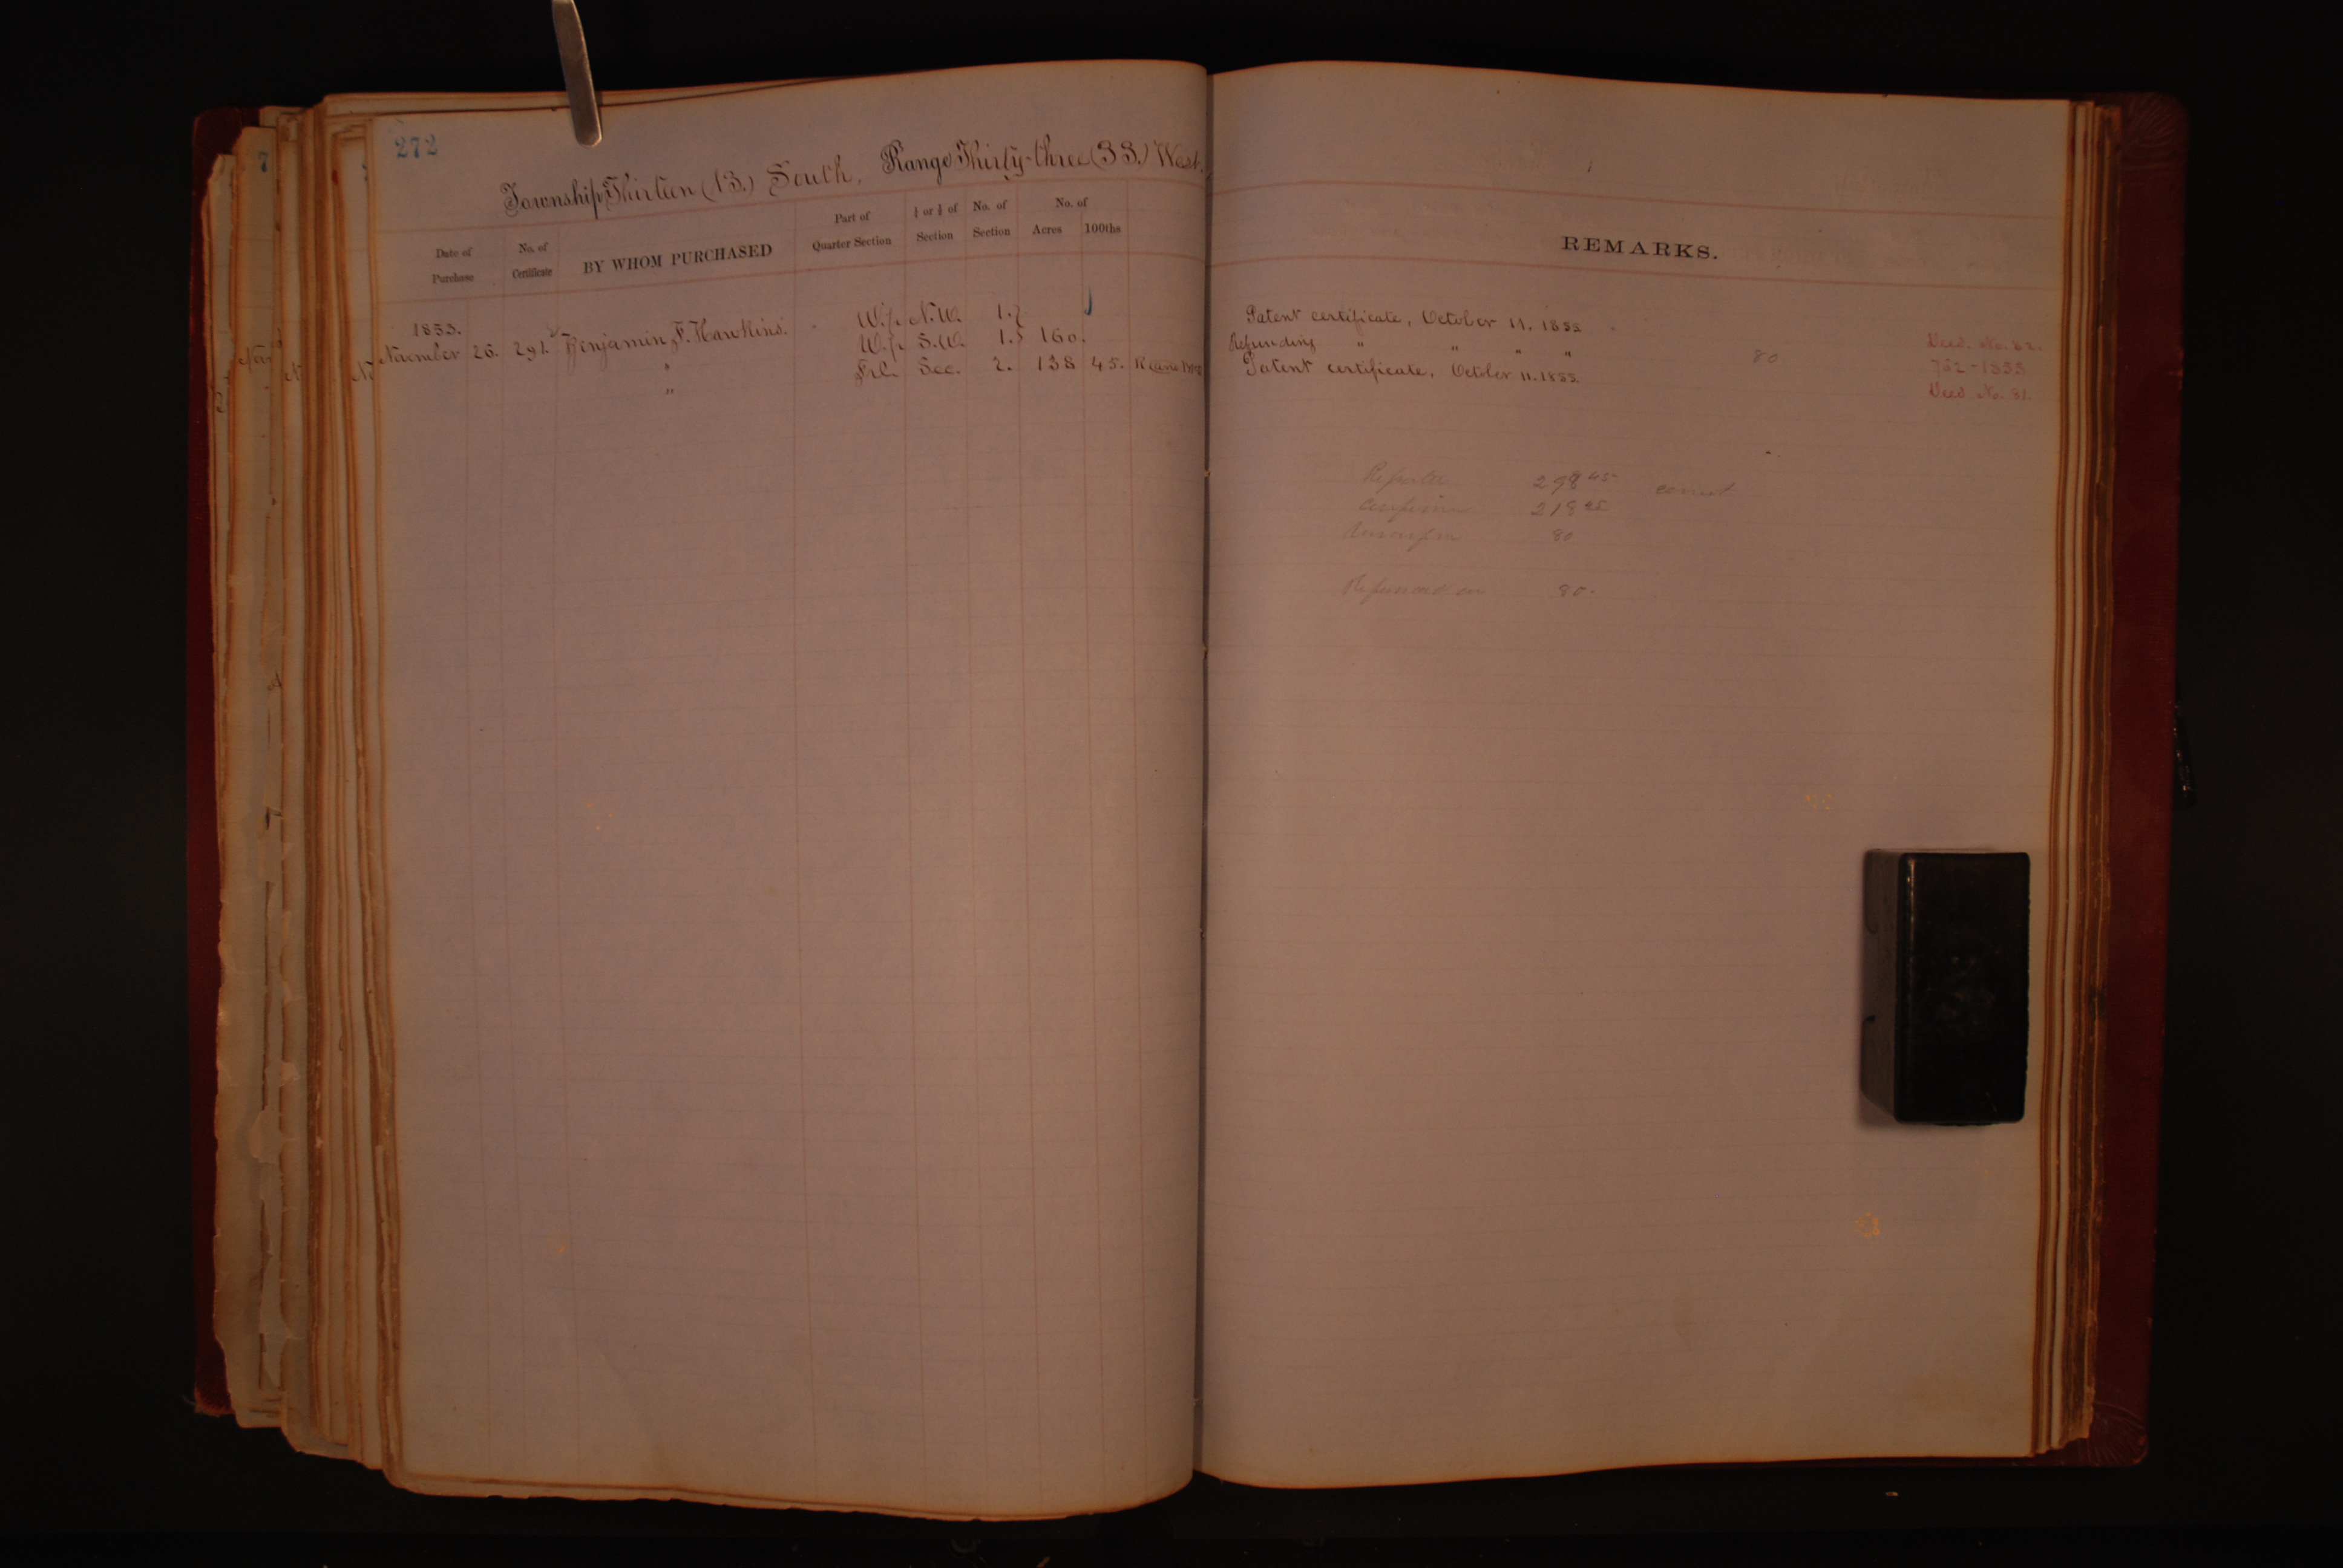 272
Township Thirteen (13.) South, Range Thirty-three (33.) West.
Date of Purchase
No. of Certificate
BY WHOM PURCHASED
Part of Quarter Section
½ or ¼ of Section
No. of Section
No. of
Acres
100ths
1853.
November 26. 291. Benjamin F. Hawkins. W.½ N.W. 1.
" W.½ S.W. 1. 160.
" Frl. Sec. 2. 138 45.
REMARKS.
Patent certificate, October 11. 1855
Refunding " " " " 80 Deed. No. 82.
Patent certificate, October 11. 1855. 752-1855
Deed No. 81.
298 45
218
80
80